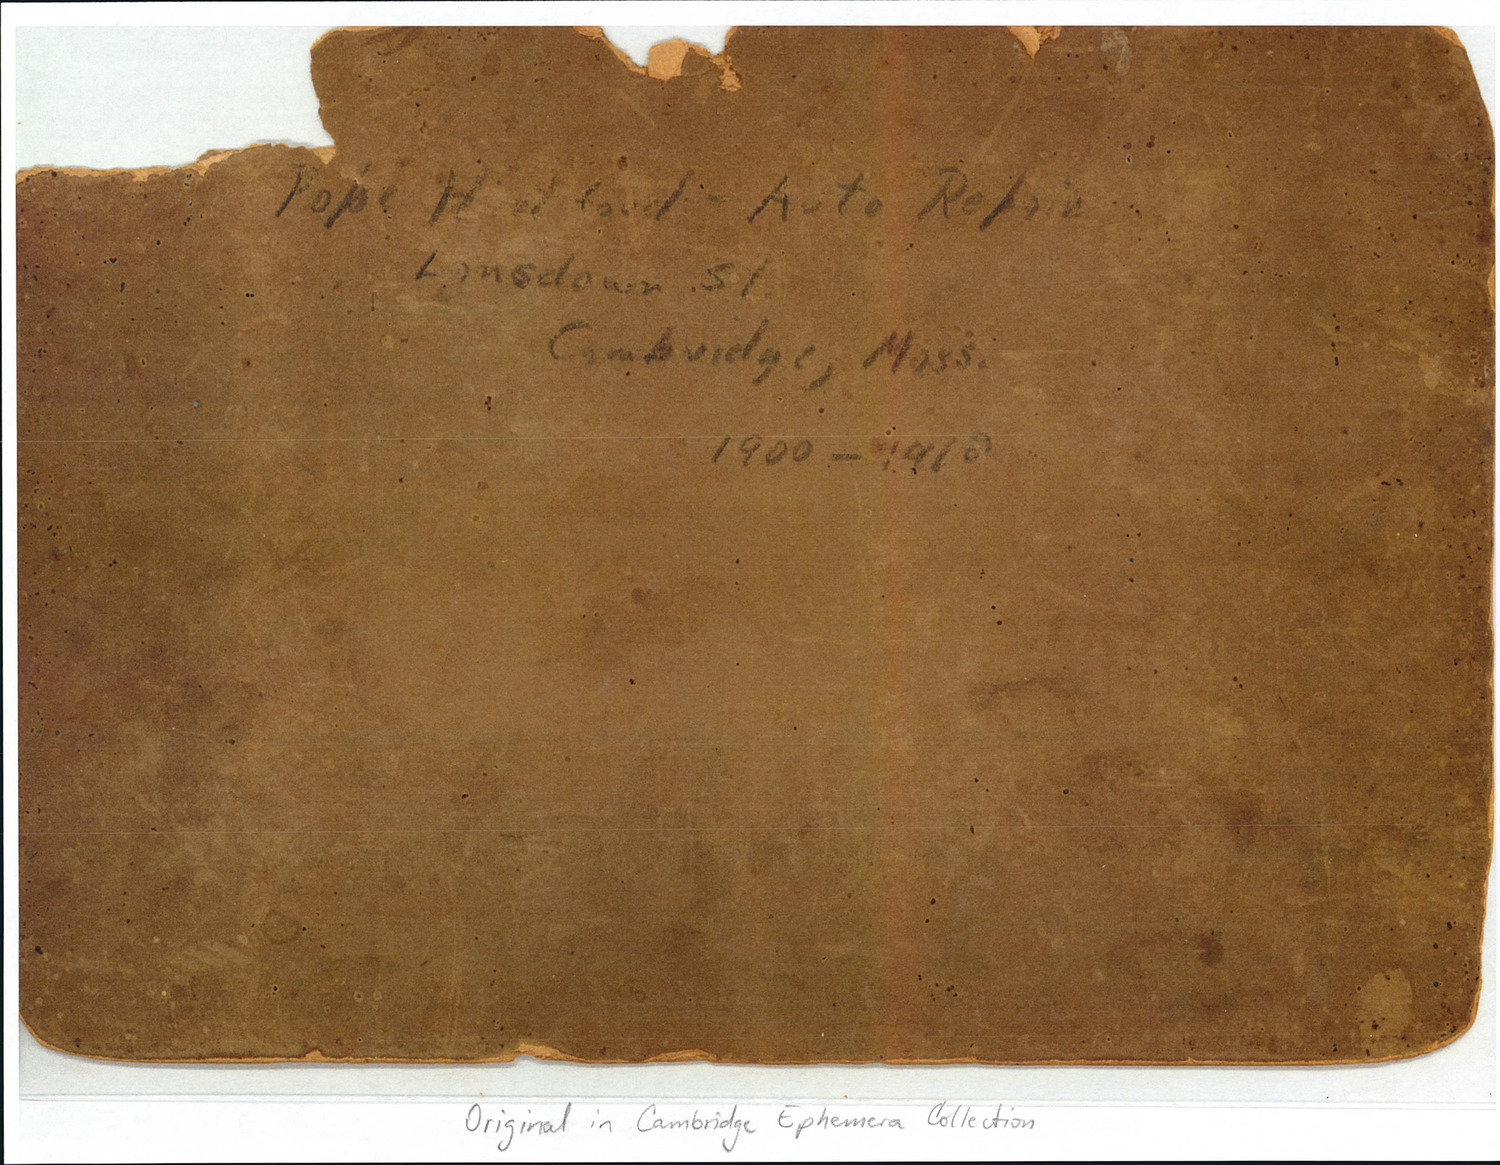 Pope - Auto Repair
Lansdown St.
Cambridge, Mass.
1900 - 1918
Original in Cambridge Ephemera Collection